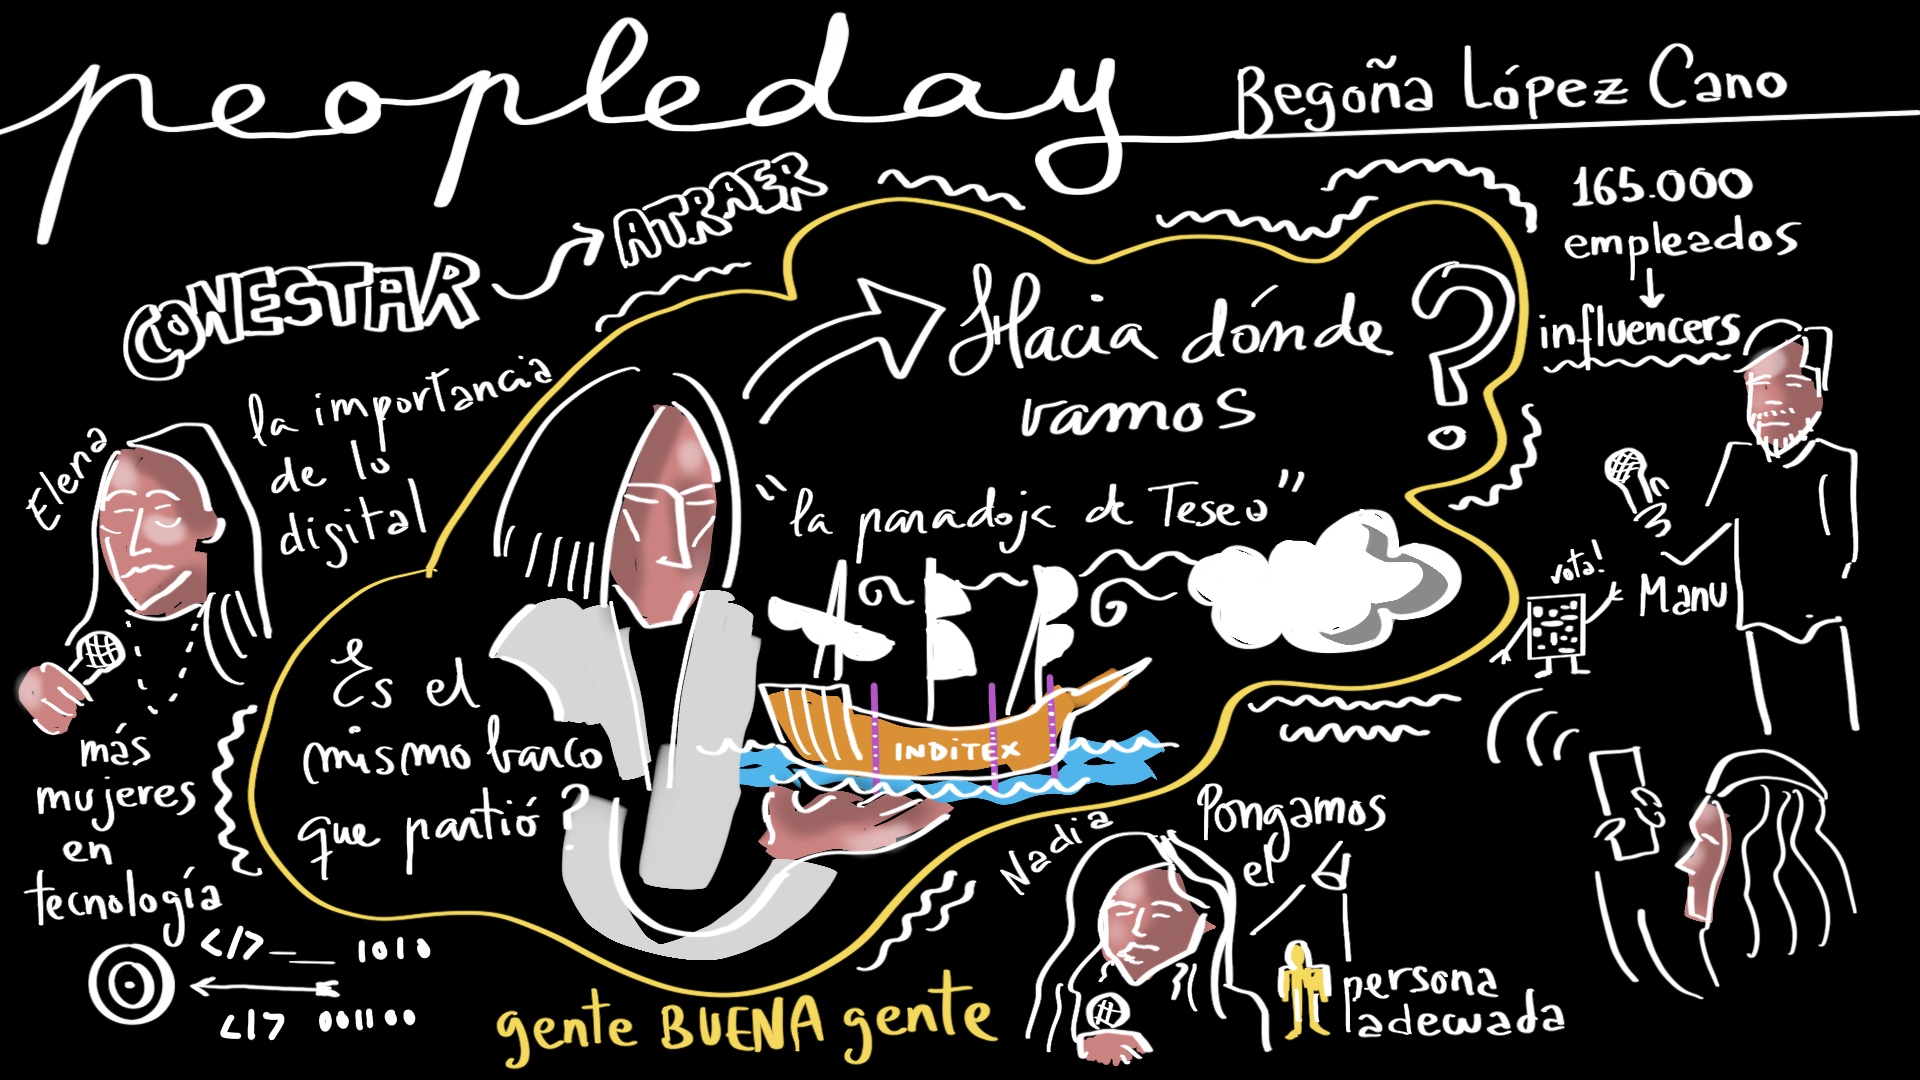 peopleday
Begoña López Cano
CONESTAR
ATRAER
165.000
empleados
influencers
Hacia dónde
vamos
?
la importancia
de lo
digital
Elena
"la paradoja de Teseo"
vota!
Manu
Es el
mismo barco
que partió?
INDITEX
más
mujeres
en
tecnología
</>__ 1010
</> 001100
Nadia
Pongamos
el
persona
adecuada
gente BUENA gente